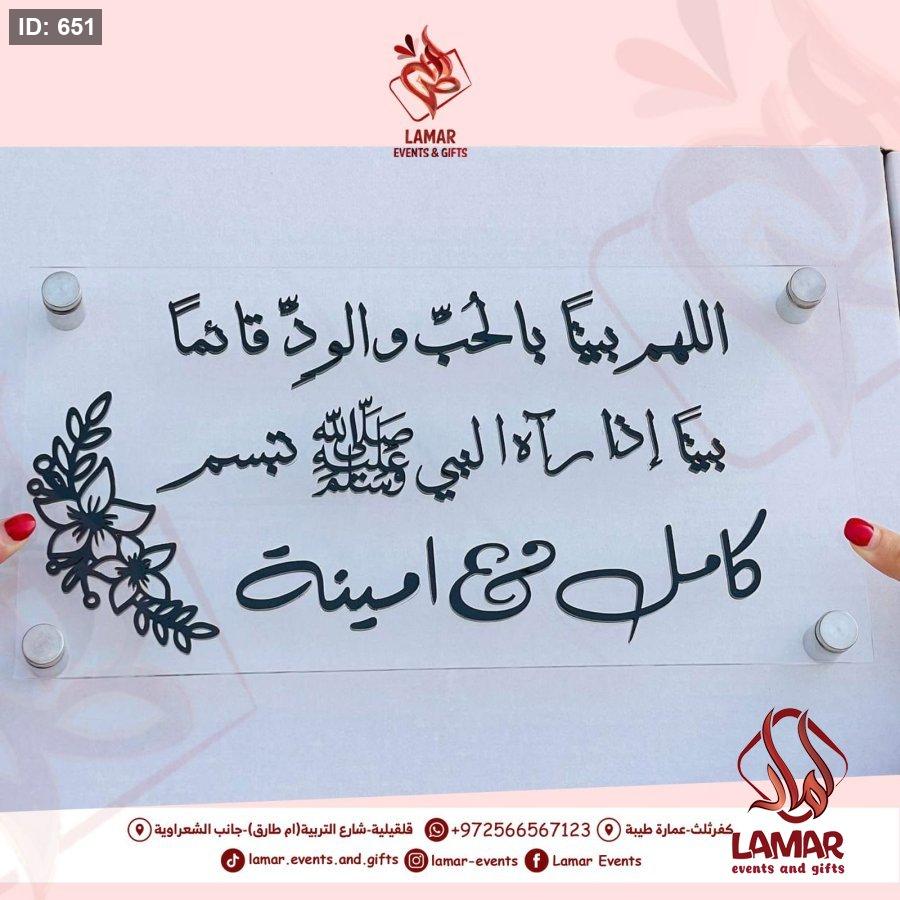 ID: 651
LAMAR
EVENTS & GIFTS
اللهم بيتًا بالحُبِّ والودِّ قائمًا
بيتًا إذا رآه النبي ﷺ تبسم
كامل مع امينة
لمار
LAMAR
events and gifts
كفرثلث-عمارة طيبة +972566567123 قلقيلية-شارع التربية(ام طارق)-جانب الشعراوية
lamar.events.and.gifts lamar-events Lamar Events